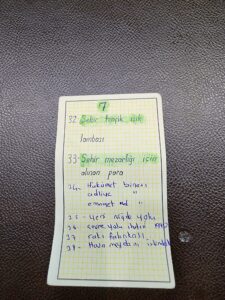 7
32. Şehir trafik ışık
lambası
33. Şehir mezarlığı için
alınan para
34. Hükümet binası
adliye "
emniyet md "
35 - yeni Niğde yolu
36. çevre yolu
37 rakı fabrikası
38 - Hava meydanı